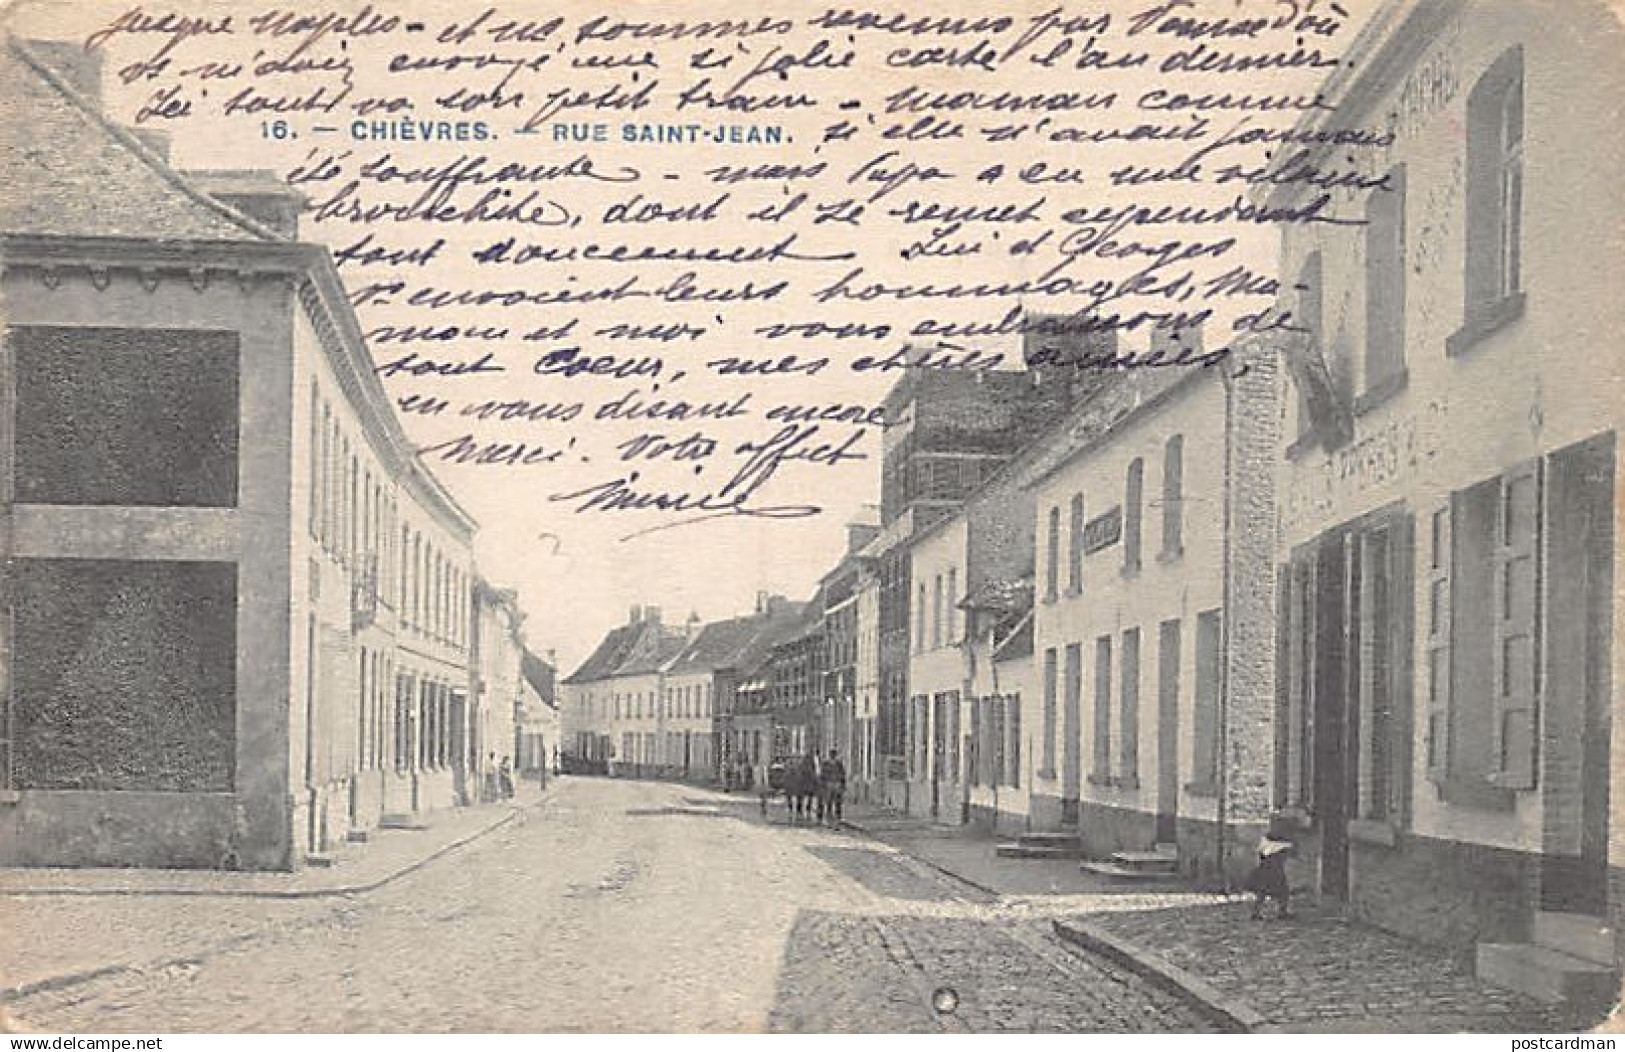 jusque Naples - et ns sommes revenus par Venise D'où
vs m'aviez envoyé une si jolie carte l'an dernier.
Ici tout va son petit train - maman comme
16. - CHIÈVRES. - RUE SAINT-JEAN.
si elle n'avait jamais
été souffrante - mais Papa a eu une vilaine
bronchite, dont il se remet cependant
tout doucement. Lui et Georges
vs envoient leurs hommages, Ma-
man et moi vous embrassons de
tout Coeur, mes chères amies,
en vous disant encore
Merci. Votre affect
postcardman